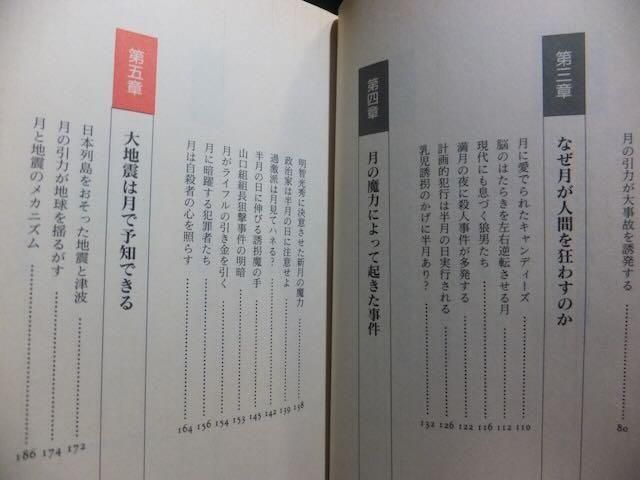 月の引力が大事故を誘発する……80
第三章
なぜ月が人間を狂わすのか
月に愛でられたキャンディーズ……110
脳のはたらきを左右逆転させる月……112
現代にも息づく狼男たち……116
満月の夜に殺人事件が多発する……122
計画的犯行は半月の日実行される……126
乳児誘拐のかげに半月あり?……132
第四章
月の魔力によって起きた事件
明智光秀に決意させた新月の魔力……138
政治家は半月の日に注意せよ……139
過激派は月見てハネる?……142
半月の日に伸びる誘拐魔の手……145
山口組組長狙撃事件の明暗……153
月がライフルの引き金を引く……154
月に暗躍する犯罪者たち……156
月は自殺者の心を照らす……164
第五章
大地震は月で予知できる
日本列島をおそった地震と津波……172
月の引力が地球を揺るがす……174
月と地震のメカニズム……186